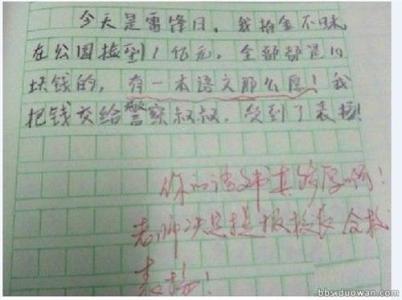 今天是雷锋日，我拾金不昧
在公园捡到1亿元，全部都是10
块钱的，有一本语文那么厚！我
把钱交给警察叔叔，受到了表扬！
你的语文书真够厚啊！
老师决定报校长 全校
表扬！
bbs.duowan.com